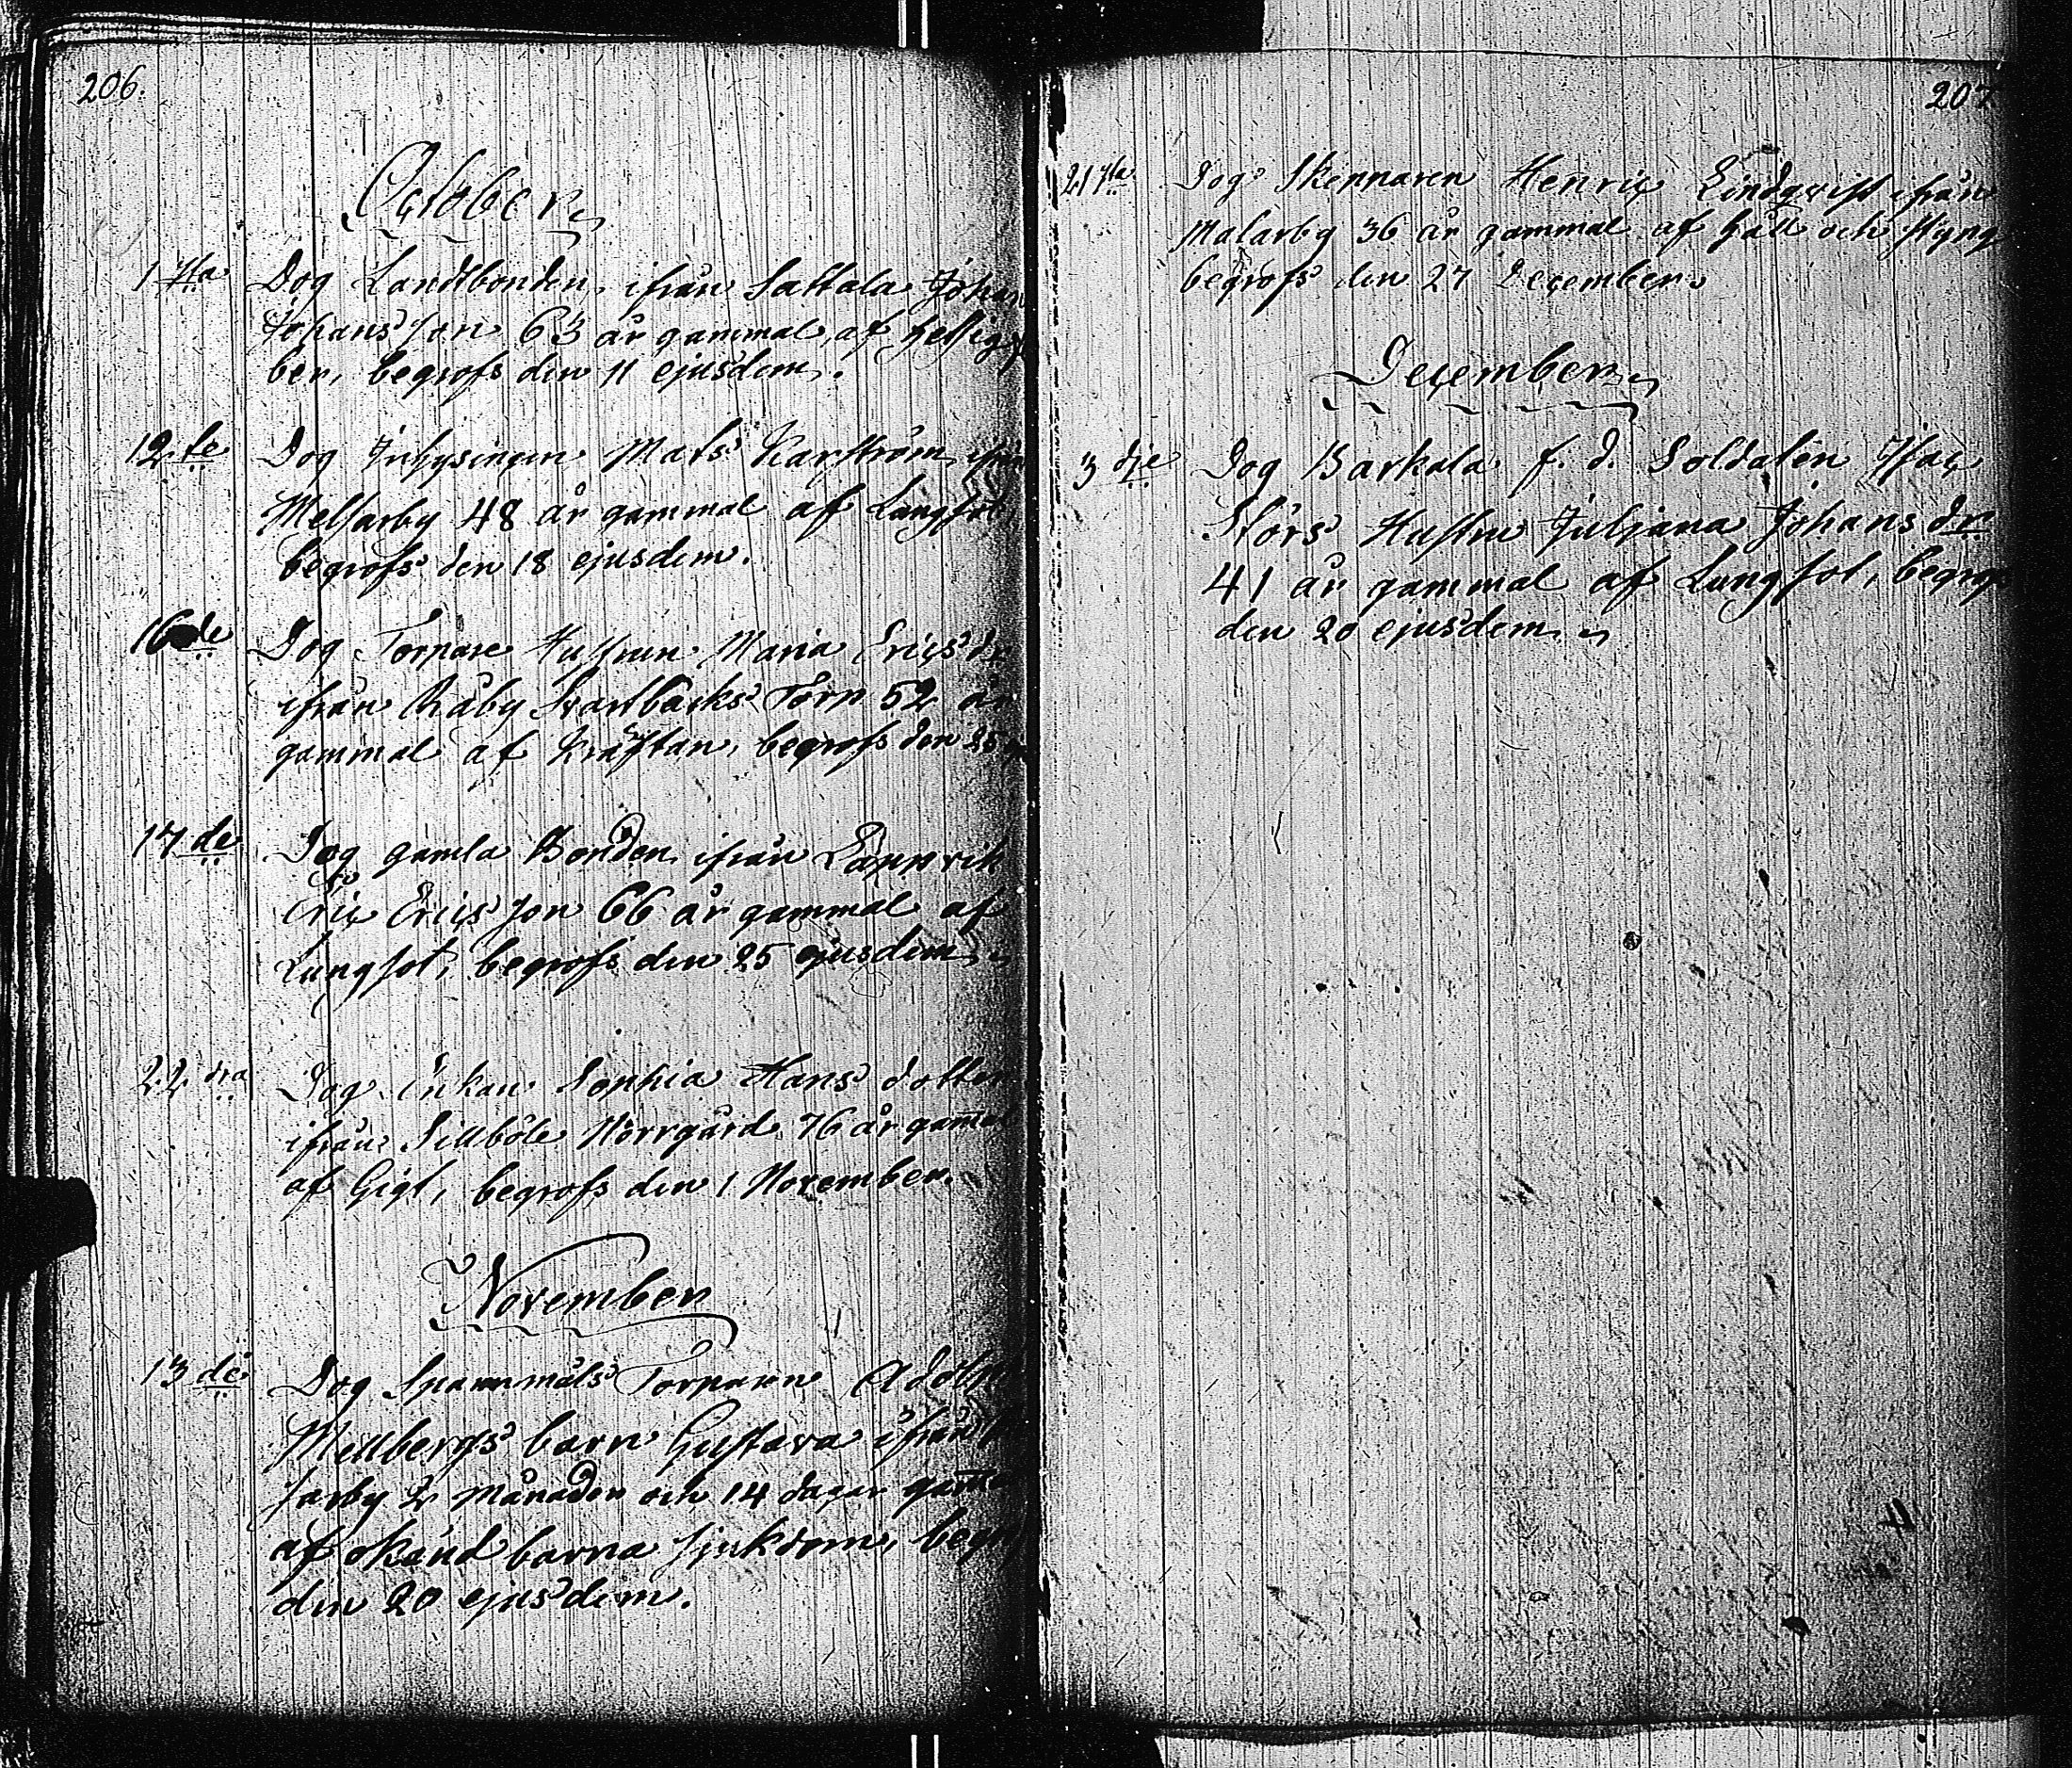 206.
October
1 sta Dog Landtbonden ifrån Sattala Johan
Johans son 63 år gammal, af hetsig fe
ber, begrofs den 11 ejusdem.
12 te Dog Inhysingen Mats Karström ifrån
Melsarby 48 år gammal af Lungsot,
begrofs den 18 ejusdem.
16 de Dog Torpare Hustrun Maria Erics dr
ifrån Råby Svartbäcks Torp 52 år
gammal af Kräftan, begrofs den 25
17 de Dog gamla Bonden ifrån Lappvik
Eric Erics son 66 år gammal af
Lungsot, begrofs den 25 ejusdem
22 dra Dog Enkan Sophia Hans dotter
ifrån Sillböle Norrgård 76 år gam̅al
af Gigt, begrofs den 1 November.
November
13 de Dog Spanmåls Torparen Adolph
Mellbergs barn Gustava ifrån
sarby 2 månader och 14 dagar gam̅al
af okänd barna sjukdom, begr
den 20 ejusdem.
207
21 sta Dog Skepparen Henric Lindqvist ifrån
Malarby 36 år gammal af håll och styng
begrofs den 27 December
December
3 dje Dog Barkala f. d. Soldaten Isac
Störs Hustru Juljana Johans dr
41 år gammal af Lungsot, begrof
den 20 ejusdem